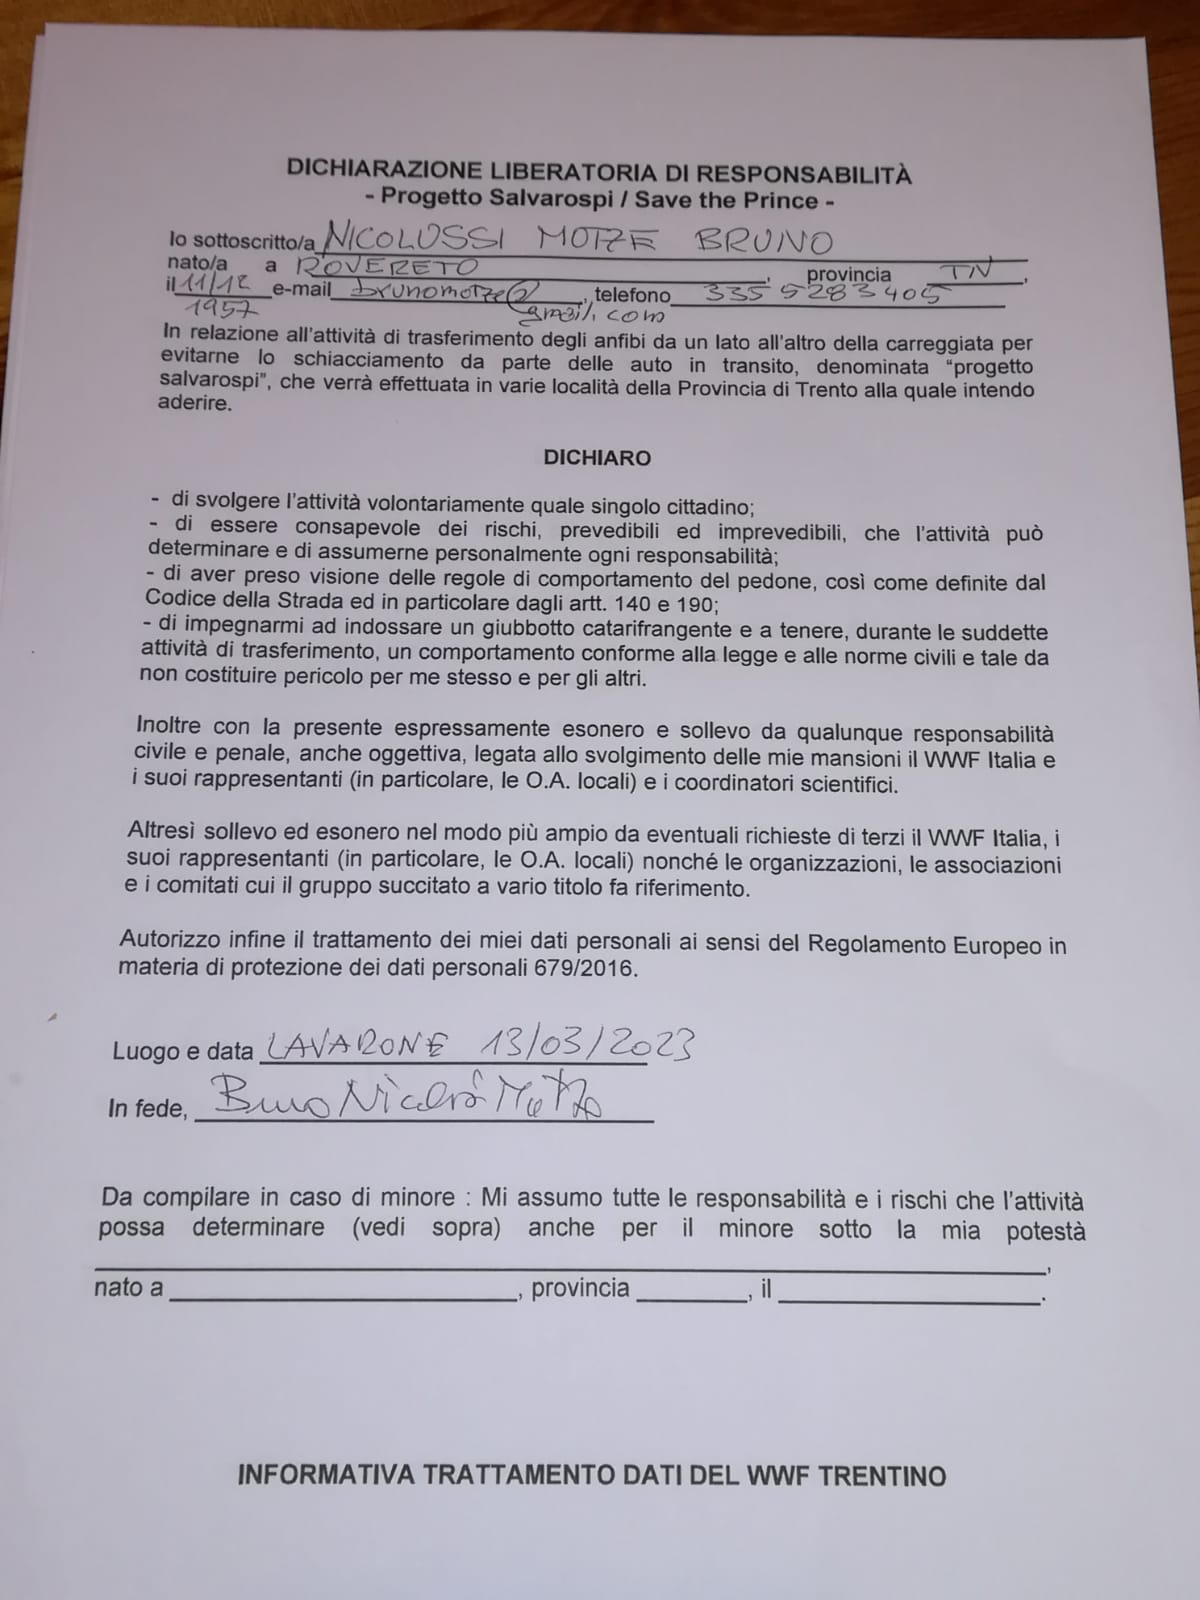 DICHIARAZIONE LIBERATORIA DI RESPONSABILITÀ
- Progetto Salvarospi / Save the Prince -
Io sottoscritto/a NICOLUSSI MOTZE BRUNO
nato/a a ROVERETO, provincia TN,
il 11/12 e-mail brunomotze@, telefono 335 5283405
1957 gmail.com
In relazione all'attività di trasferimento degli anfibi da un lato all'altro della carreggiata per
evitarne lo schiacciamento da parte delle auto in transito, denominata “progetto
salvarospi”, che verrà effettuata in varie località della Provincia di Trento alla quale intendo
aderire.
DICHIARO
- di svolgere l'attività volontariamente quale singolo cittadino;
- di essere consapevole dei rischi, prevedibili ed imprevedibili, che l'attività può
determinare e di assumerne personalmente ogni responsabilità;
- di aver preso visione delle regole di comportamento del pedone, così come definite dal
Codice della Strada ed in particolare dagli artt. 140 e 190;
- di impegnarmi ad indossare un giubbotto catarifrangente e a tenere, durante le suddette
attività di trasferimento, un comportamento conforme alla legge e alle norme civili e tale da
non costituire pericolo per me stesso e per gli altri.
Inoltre con la presente espressamente esonero e sollevo da qualunque responsabilità
civile e penale, anche oggettiva, legata allo svolgimento delle mie mansioni il WWF Italia e
i suoi rappresentanti (in particolare, le O.A. locali) e i coordinatori scientifici.
Altresì sollevo ed esonero nel modo più ampio da eventuali richieste di terzi il WWF Italia, i
suoi rappresentanti (in particolare, le O.A. locali) nonché le organizzazioni, le associazioni
e i comitati cui il gruppo succitato a vario titolo fa riferimento.
Autorizzo infine il trattamento dei miei dati personali ai sensi del Regolamento Europeo in
materia di protezione dei dati personali 679/2016.
Luogo e data LAVARONE 13/03/2023
In fede, Bruno
Da compilare in caso di minore : Mi assumo tutte le responsabilità e i rischi che l'attività
possa determinare (vedi sopra) anche per il minore sotto la mia potestà
,
nato a , provincia , il .
INFORMATIVA TRATTAMENTO DATI DEL WWF TRENTINO